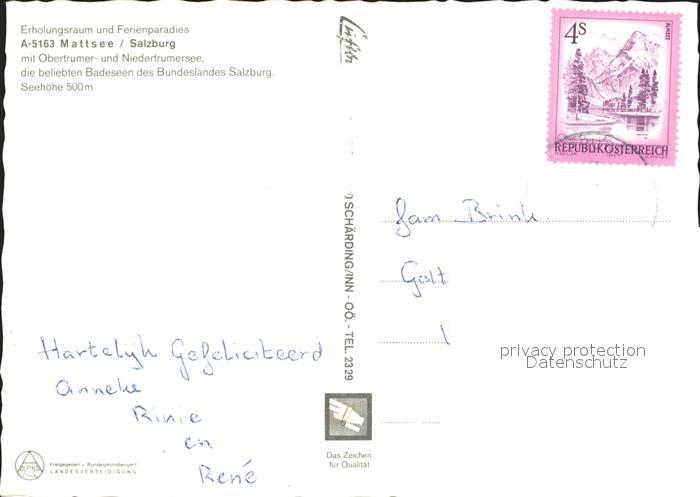 Erholungsraum und Ferienparadies
A-5163 Mattsee / Salzburg
mit Obertrumer- und Niedertrumersee,
die beliebten Badeseen des Bundeslandes Salzburg.
Seehöhe 500 m
Hartelijk Gefeliciteerd
Anneke
Rinie
en
René
ALPINA
Freigegeben v. Bundesministerium f.
LANDESVERTEIDIGUNG
SCHÄRDING/INN - OÖ. - TEL. 2329
Das Zeichen
für Qualität
4S
ALMSEE
REPUBLIK ÖSTERREICH
Fam Brink.
privacy protection
Datenschutz